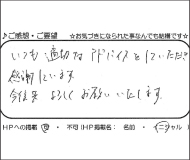 ♪ご感想・ご要望 ☆お気づきになられた事なんでも結構です☆
いつも 適切な アドバイスをしていただき
感謝しています。
今後共 よろしく お願いいたします。
HPへの掲載 可 ・ 不可 (HP掲載名: 名前 ・ イニシャル)